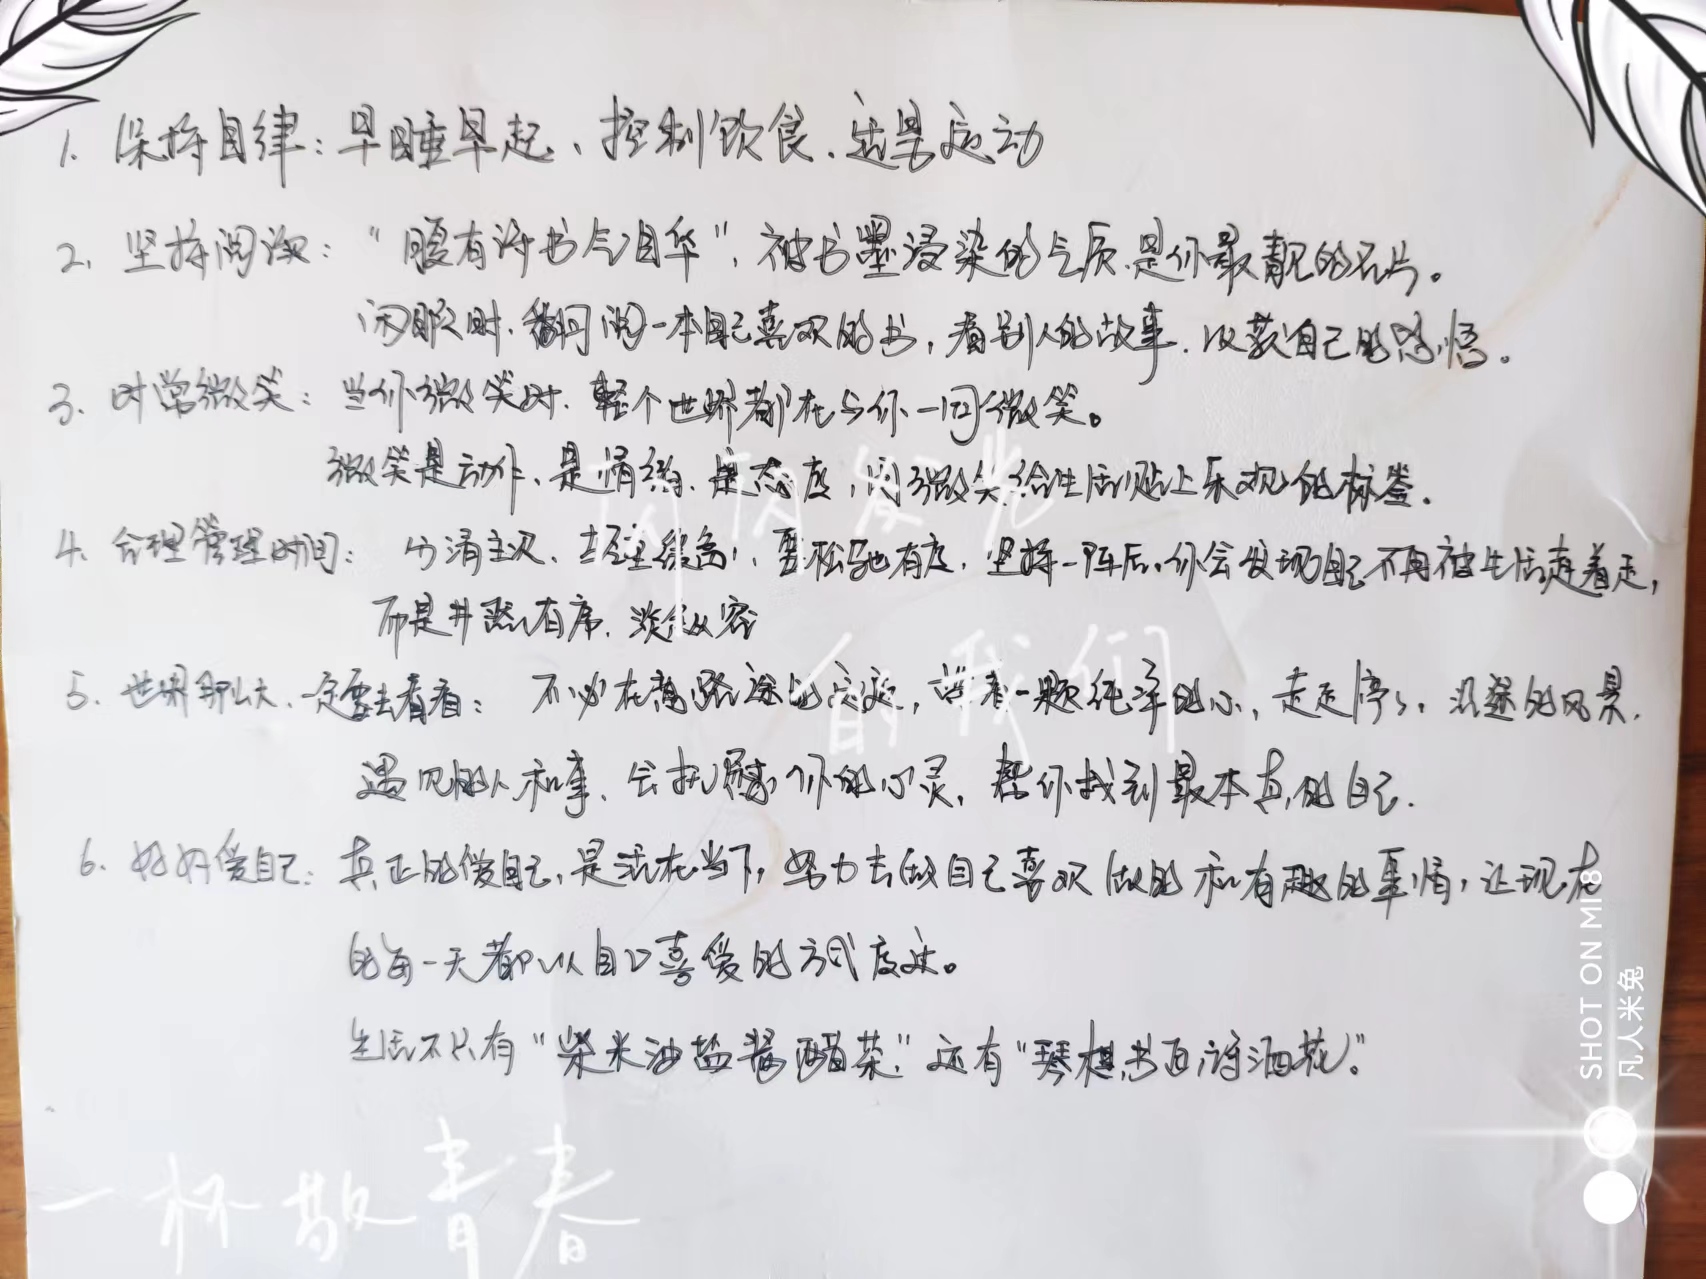 1. 保持自律：早睡早起、控制饮食、适量运动
2. 坚持阅读："腹有诗书气自华"，被书墨浸染的气质，是你最靓的名片。
闲暇时，翻阅一本自己喜欢的书，看别人的故事，收获自己的感悟。
3. 时常微笑：当你微笑时，整个世界都在与你一同微笑。
微笑是动作、是情绪、是态度，用微笑给生活贴上乐观的标签。
闪闪发光
4. 合理管理时间：分清主次、轻重缓急，要松弛有度，坚持一阵后，你会发现自己不再被生活赶着走，
而是井然有序，淡定从容
的我们
5. 世界那么大，一定要去看看：不必在意路途的，带着一颗纯净的心，走走停停，沿途的风景，
遇见的人和事，会抚慰你的心灵，帮你找到最本真的自己.
6. 好好爱自己：真正的爱自己，是活在当下，努力去做自己喜欢做的和有趣的事情，让现在
的每一天都以自己喜爱的方式度过。
生活不只有"柴米油盐酱醋茶，"还有"琴棋书画诗酒花"。
一杯敬青春
SHOT ON MI8
凡人米兔